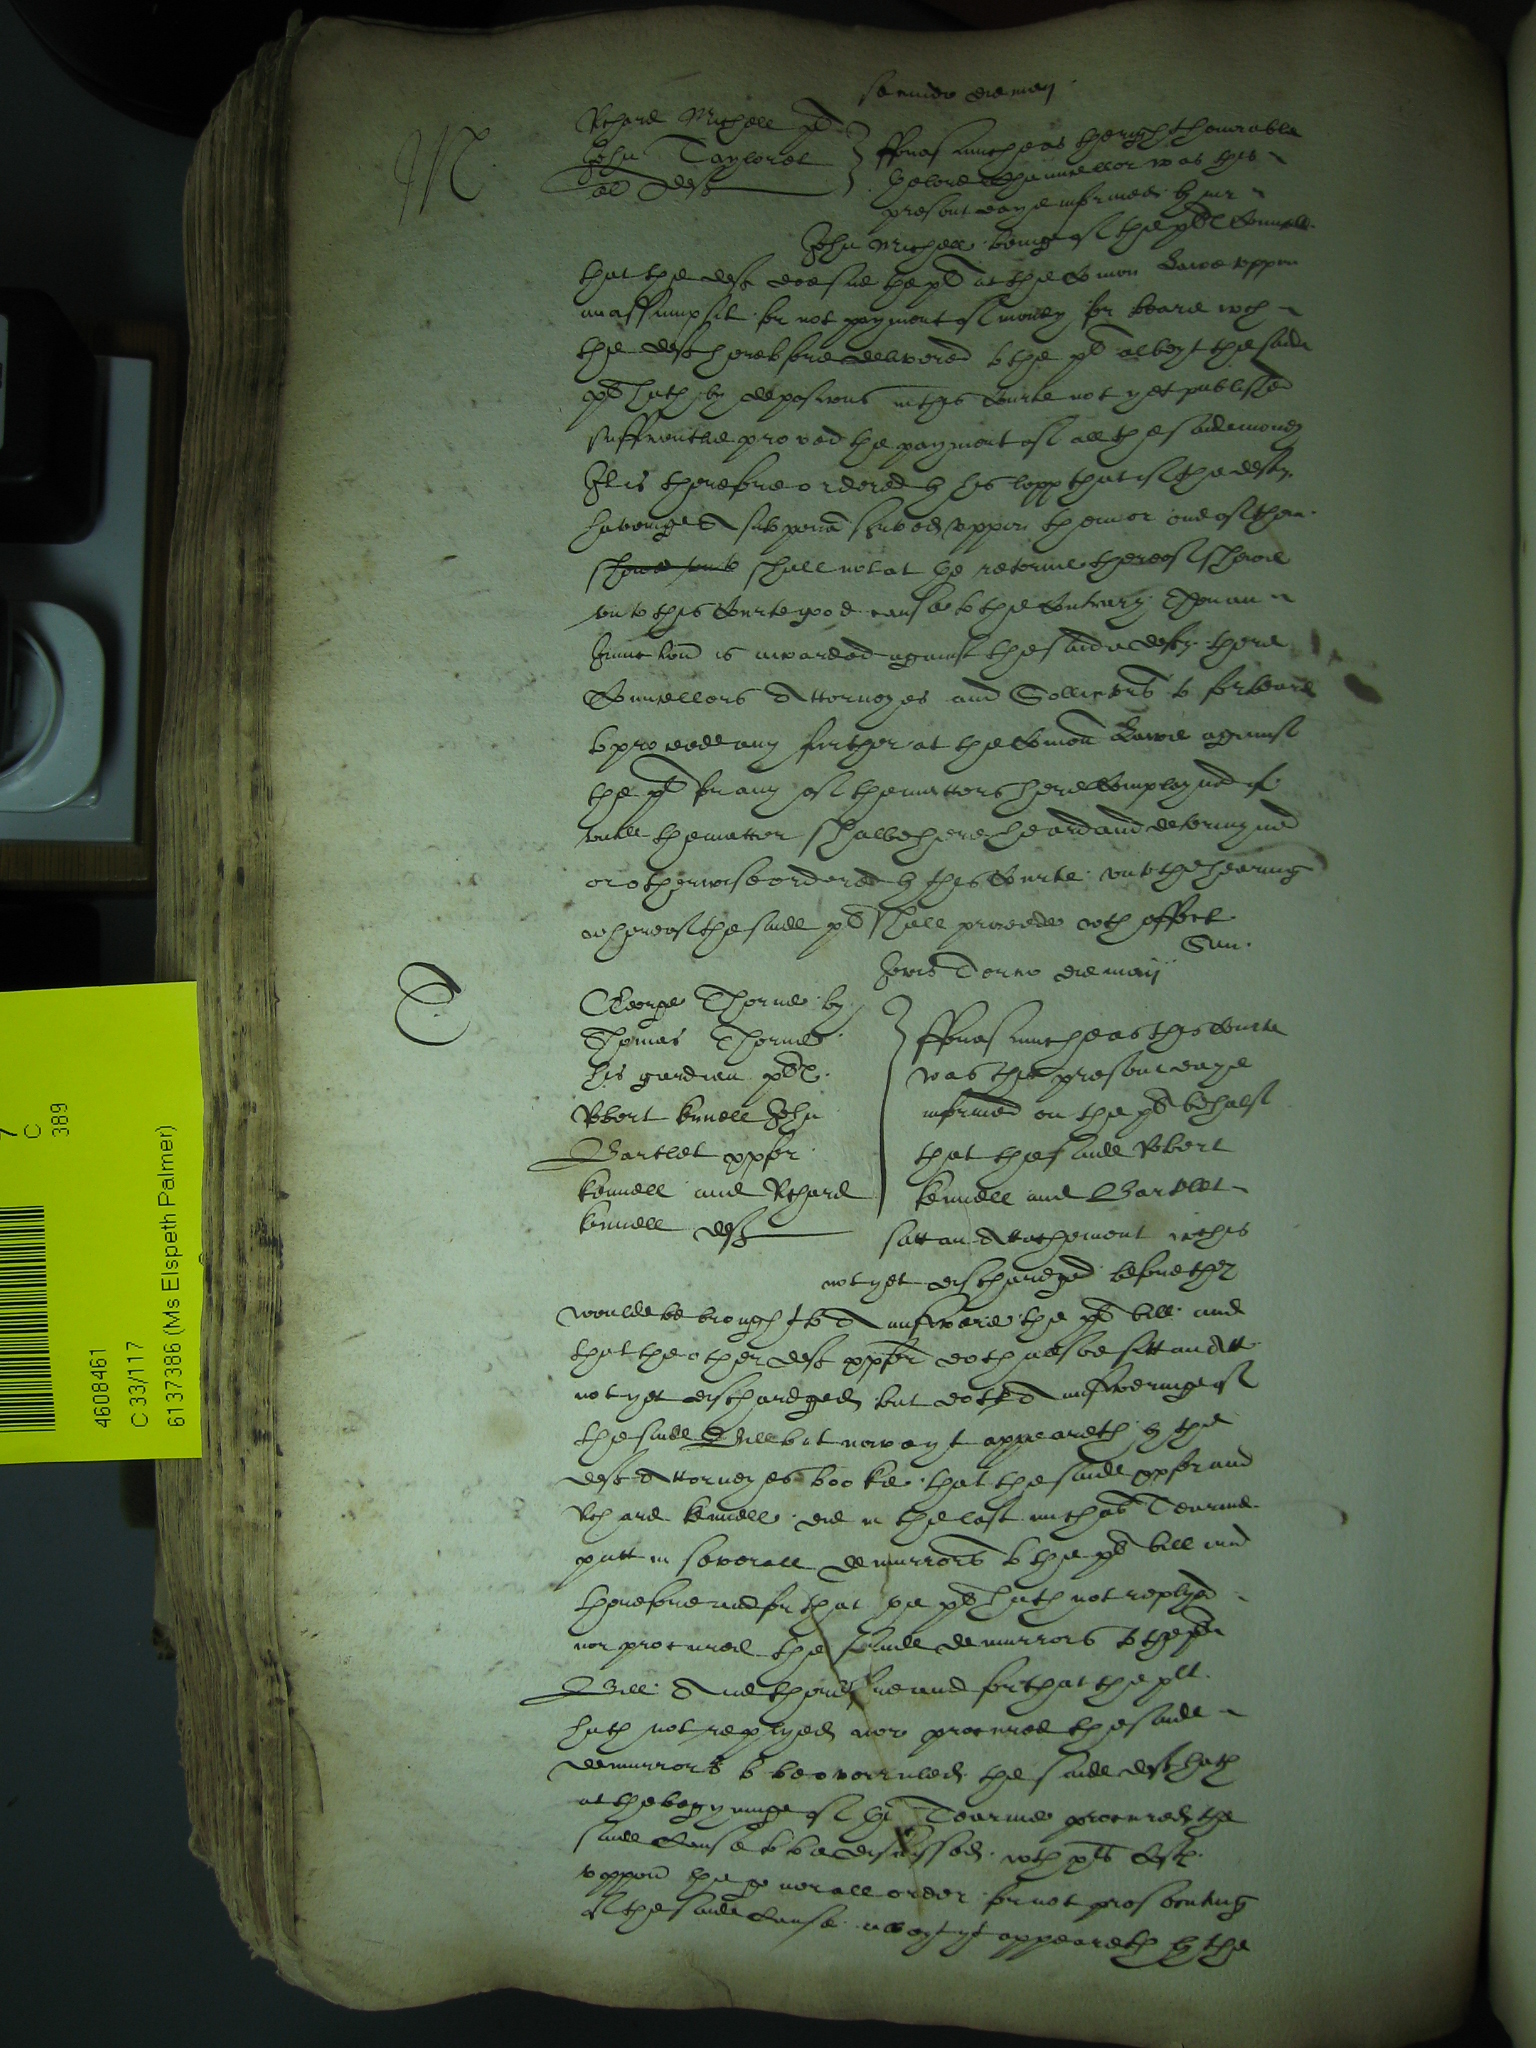 secundo die maij
M
Richard Michell pl
John Taylor et
al deftes
fforasmuche as the right honorable
the lord Chauncellor was this
present daye informed by mr
John Michell being of the pltes Counsell
that the deft doe sue the pl at the Comon Lawe uppon
an assumpsit for not payment of money for ware wch
the deft heretofore delivered to the pl albeyt the saide
pl hath by deposicons in this Courte not yet published
sufficientlie proved the payment of all the saide money
It is therefore ordered by his lopp that if the deftes
haveinge A subpena served uppon them or one of them
shewe unto shall not at the retorne thereof shewe
unto this Courte good cause to the contrary Then an
Iniunccon is awarded against the saide deftes there
Counsellors Attorneyes and Sollicitors to forbeare
to proceede any further at the Comon Lawe against
the pl for any of the matters here complayned of
untill the matter shalbe here heard and determyned
or otherwise ordered by this Courte unto the hearing
whereof the saide pl shall proceede wth effect
Jovis Tercio die maij
C
George Thorne by
Thomas Thorne
his gardian plte
Robert Kennell John
Bartlet
Kennell and Richard
Kennell deftes
fforasmuche as this Courte
was this present daye
informed on the pl behalf
that the saide Robert
Kennell and Bartlet
satt an Attachement wch is
not yet discharged before they
woulde be brought to Answere the pl bill and
that the other deft doth also sitt an Att
not yet discharged but doth Answeringe of
the saide Bill but now as yt appeareth by the
deft Attorneyes booke that the saide and
Richard Kennell did in the last michas Tearme
putt in severall demurrors to the pl bill and
therefore and for that the pl hath not replyed
nor procured the saide demurrors to the pl
Bill And therefore and for that the plt
hath not replyed nor procured the saide
demurrors to be overruled the saide deft hath
at the begynninge of this Tearme procured the
saide Cause to be dismyssed wth pl Costes
uppon the generall order for not prosecuting
of the saide Cause as yt appeareth by the
4608461
C 33/117
6137386 (Ms Elspeth Palmer)
C
389